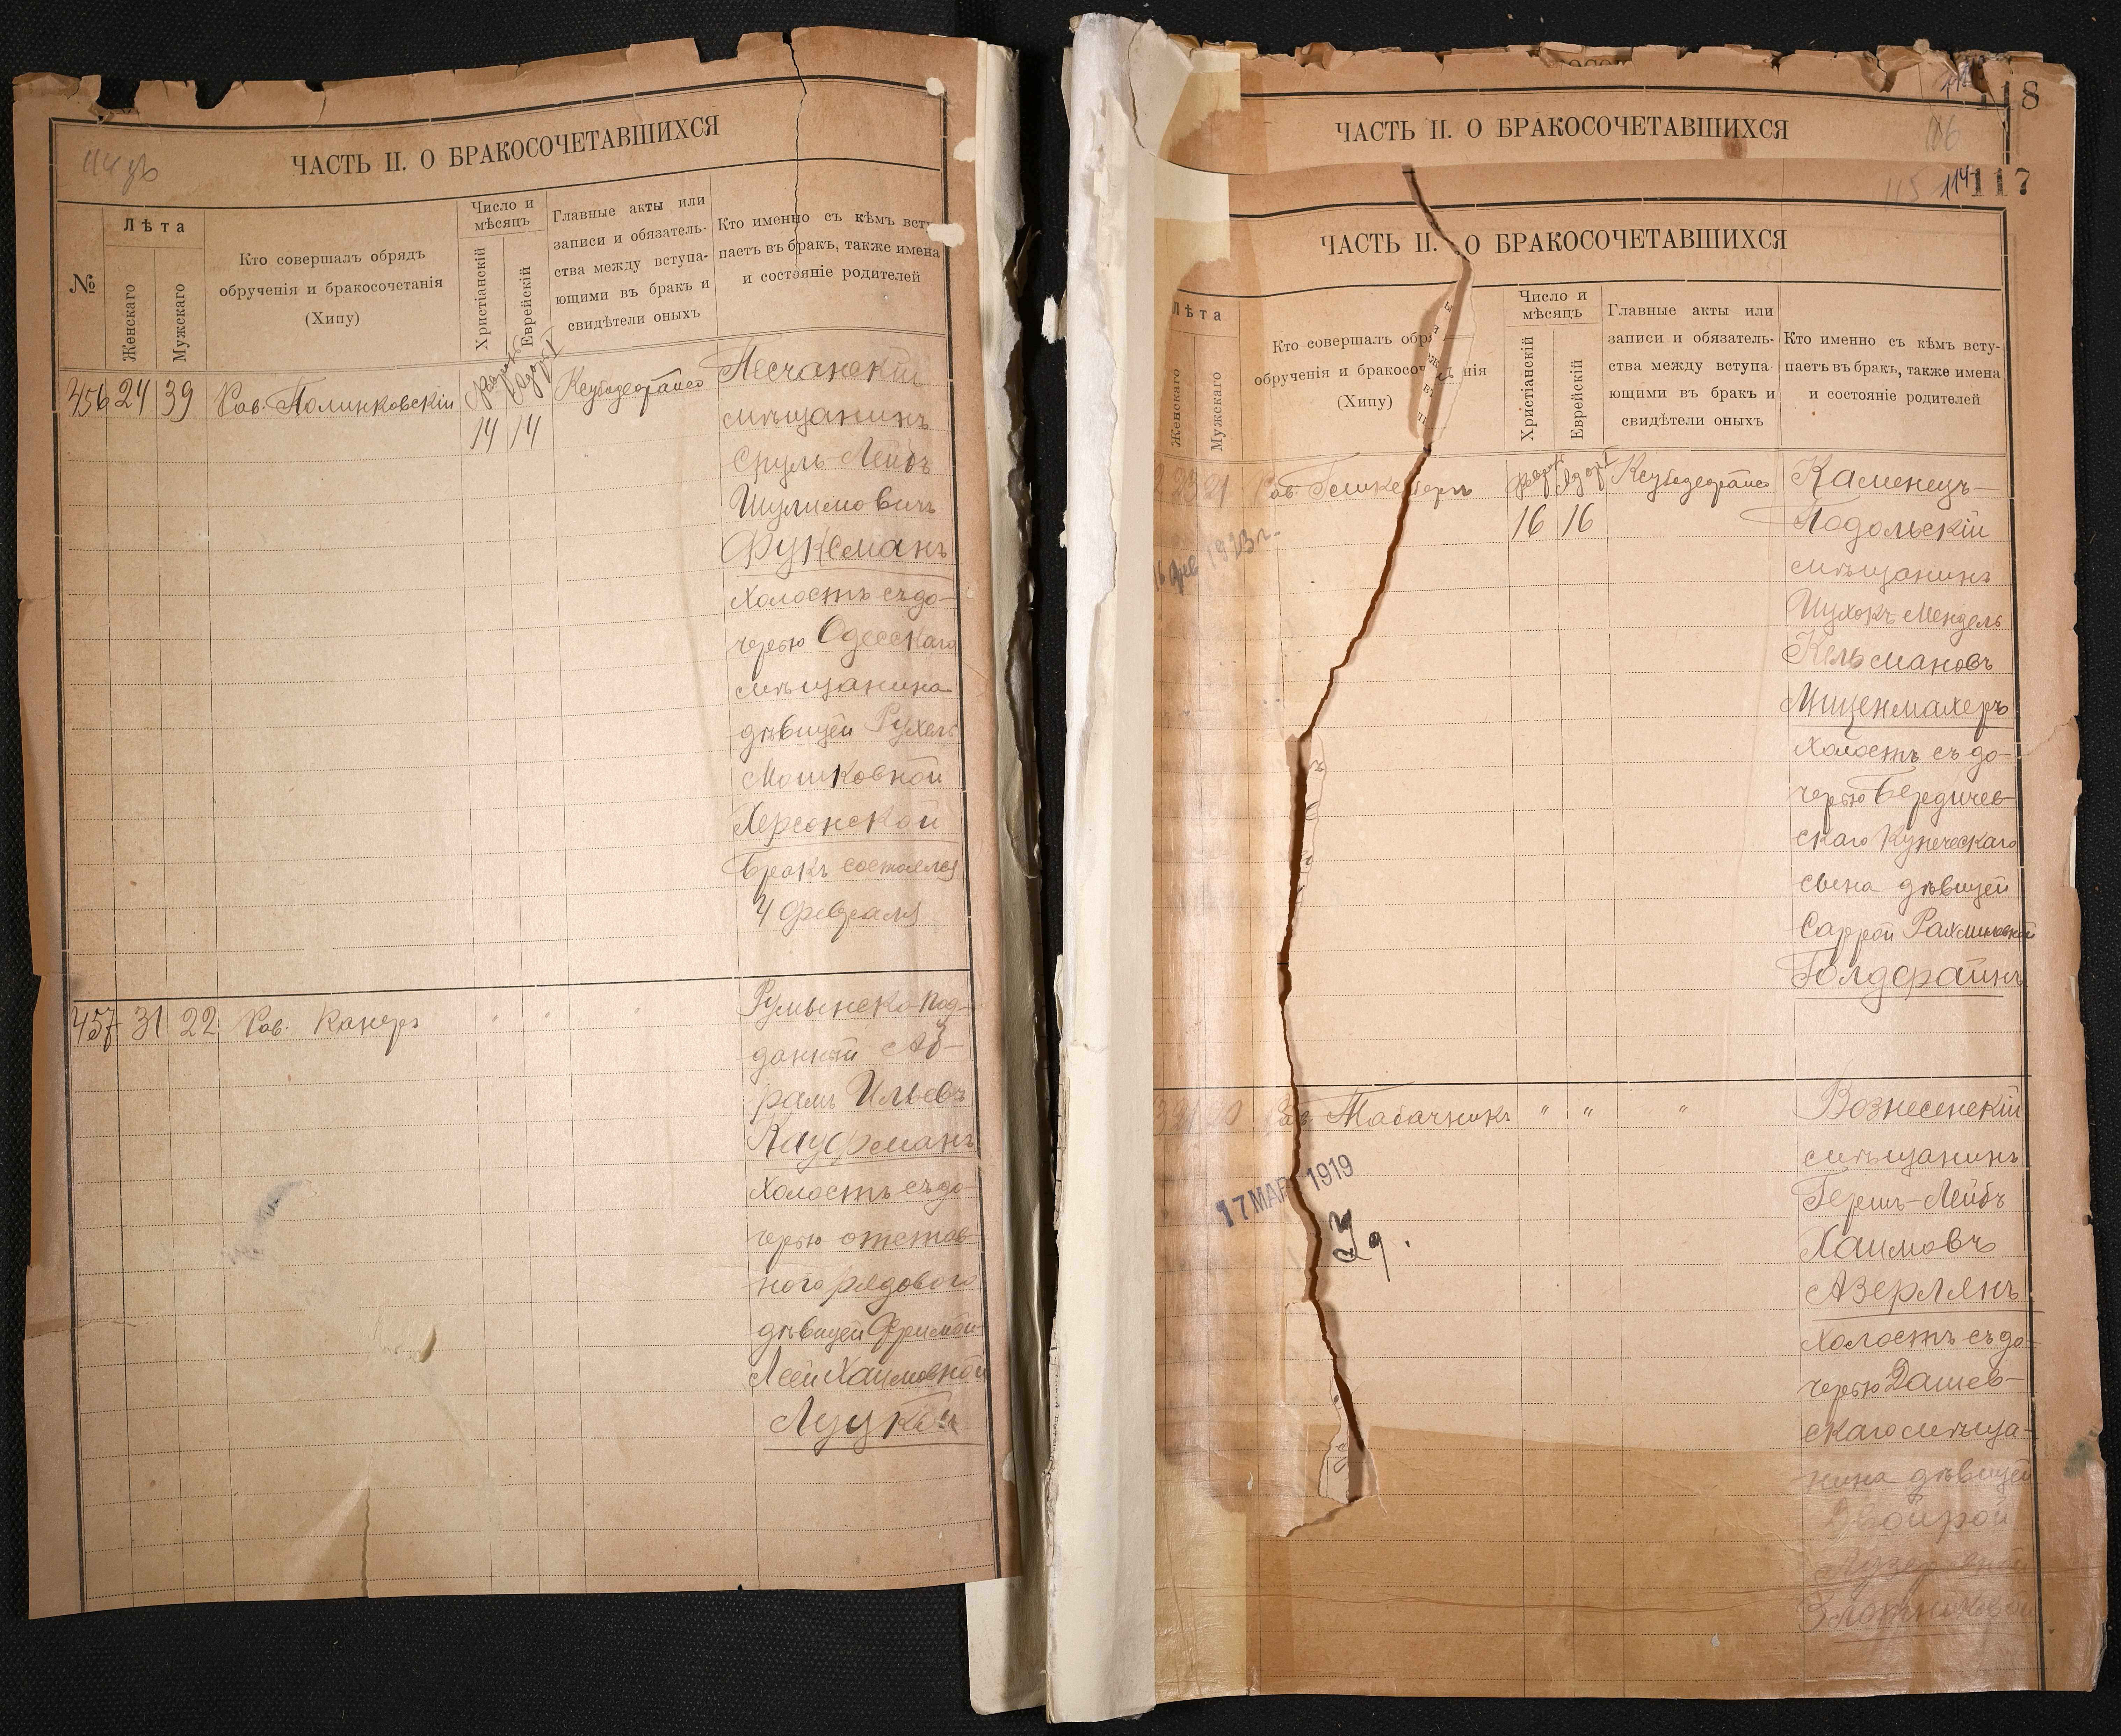 ЧАСТЬ II. О БРАКОСОЧЕТАВШИХСЯ
№
Лѣта
Женскаго
Мужскаго
Кто совершалъ обрядъ
обрученія и бракосочетанія
(Хипу)
Число и
мѣсяцъ
Христіанскій
Еврейскій
Главные акты или
записи и обязатель-
ства между вступа-
ющими въ бракъ и
свидѣтели оныхъ
Кто именно съ кѣмъ всту
паетъ въ бракъ, также имена
и состояніе родителей
456 24 39 Рав. Полинковскій
14 14
Песчанскій
мѣщанинъ
Сруль-Лейбъ
Шулимовичъ
Фуксманъ
холостъ съ до-
черью Одесскаго
мѣщанина
дѣвицей Рухель
Мошковной
Херсонской
Бракъ состоялся
4 февраля
457 31 22 Рав. Канеръ " " "
Румынско-под-
данный Аб-
рамъ Ильевъ
Кауфманъ
холостъ съ до-
черью отстав-
ного рядового
дѣвицей Фримой-
Леей Хаимовной
Луцкой
118
ЧАСТЬ II. О БРАКОСОЧЕТАВШИХСЯ
115 114 117
ЧАСТЬ II. О БРАКОСОЧЕТАВШИХСЯ
Лѣта
Женскаго
Мужскаго
Кто совершалъ обр
обрученія и бракосоч нія
(Хипу)
Число и
мѣсяцъ
Христіанскій
Еврейскій
Главные акты или
записи и обязатель-
ства между вступа-
ющими въ бракъ и
свидѣтели оныхъ
Кто именно съ кѣмъ всту-
паетъ въ бракъ, также имена
и состояніе родителей
23 21 Рав.
16 16
1923 г.
Каменецъ-
Подольскій
мѣщанинъ
Ицхокъ Мендель
Кельмановъ
Миценмахеръ
холостъ съ до-
черью Бердичев-
скаго купеческаго
сына дѣвицей
Саррой Рахмиловной
Голдфайнъ
Рав. Табачникъ " " "
17 МАР 1919
Вознесенскій
мѣщанинъ
Гершъ-Лейбъ
Хаимовъ
Азерлянъ
холостъ съ до-
черью Дашев-
скаго мѣща-
нина дѣвицей
Двойрой